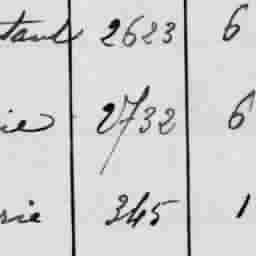 tant 2623 6
ie 2732 6
rie 345 1